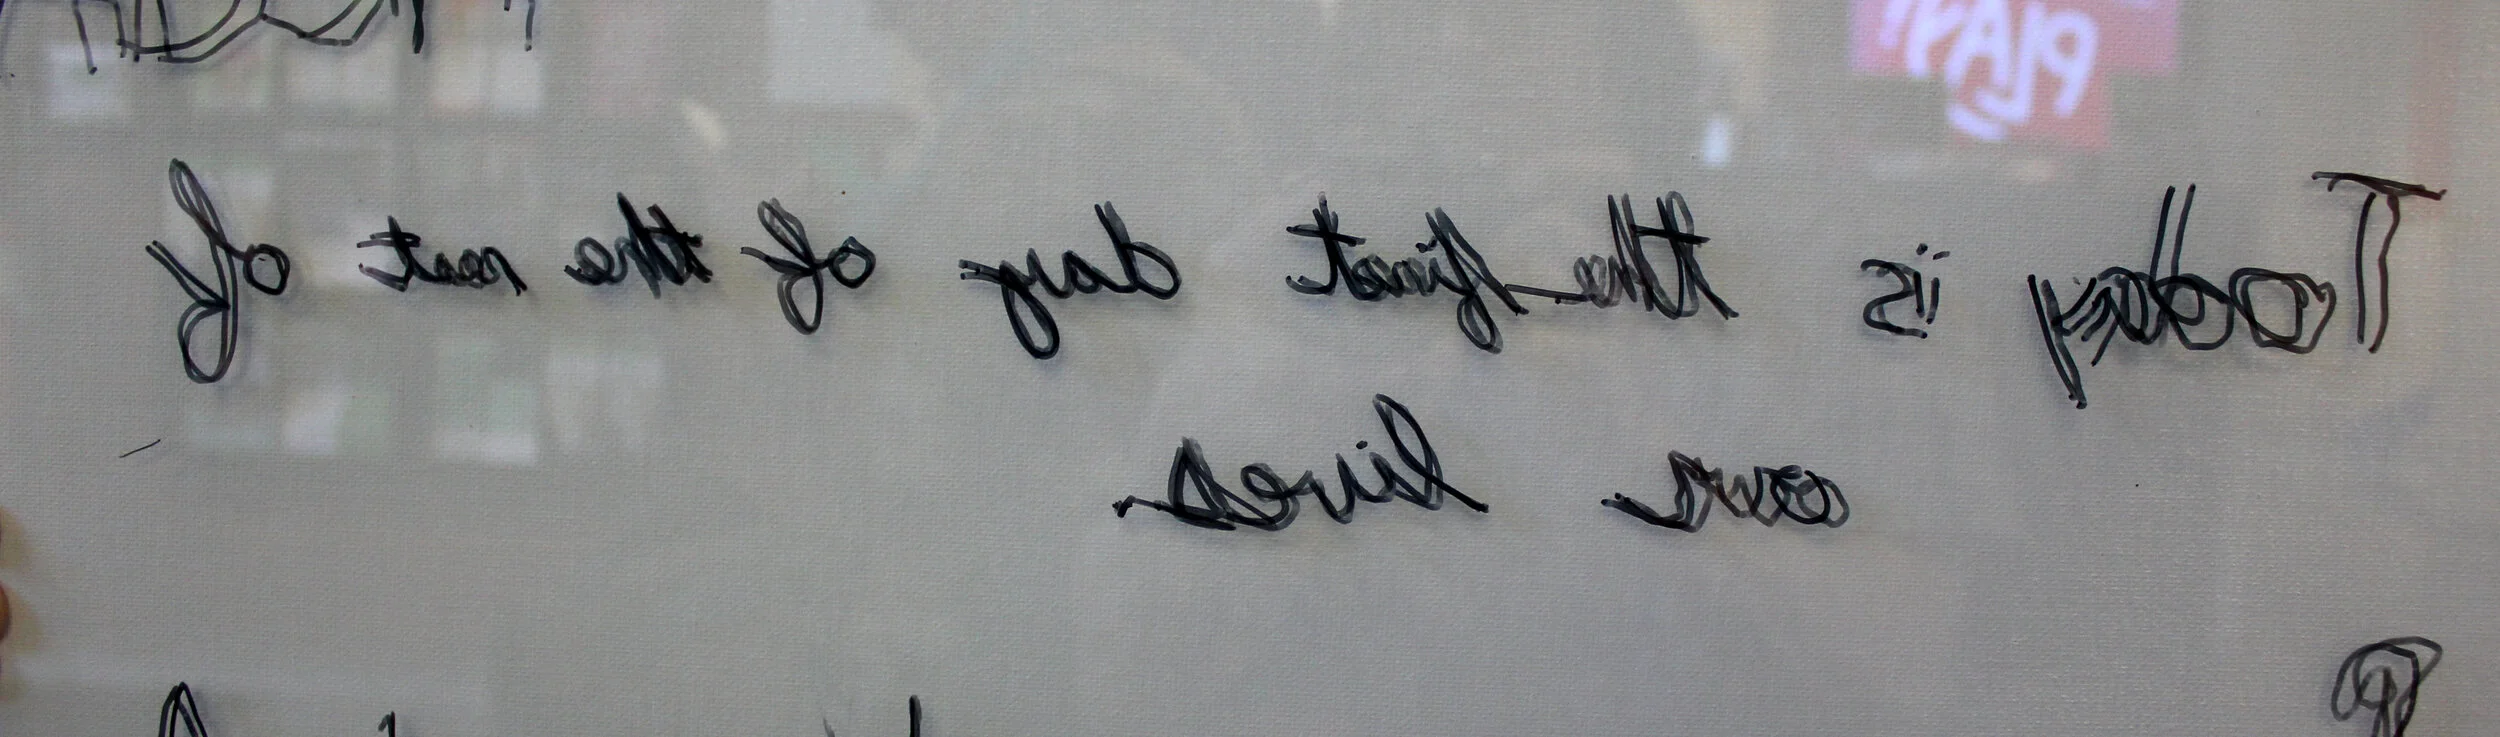 PLAY!
Today is the first day of the rest of
our lives